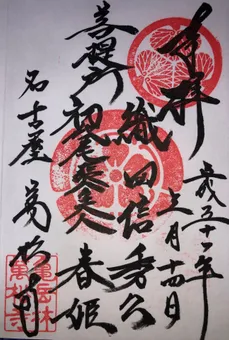 奉拝
平成三十一年
月十四日
織田信秀公
菩提所
春姫
名古屋 萬松寺
亀岳林
萬松寺